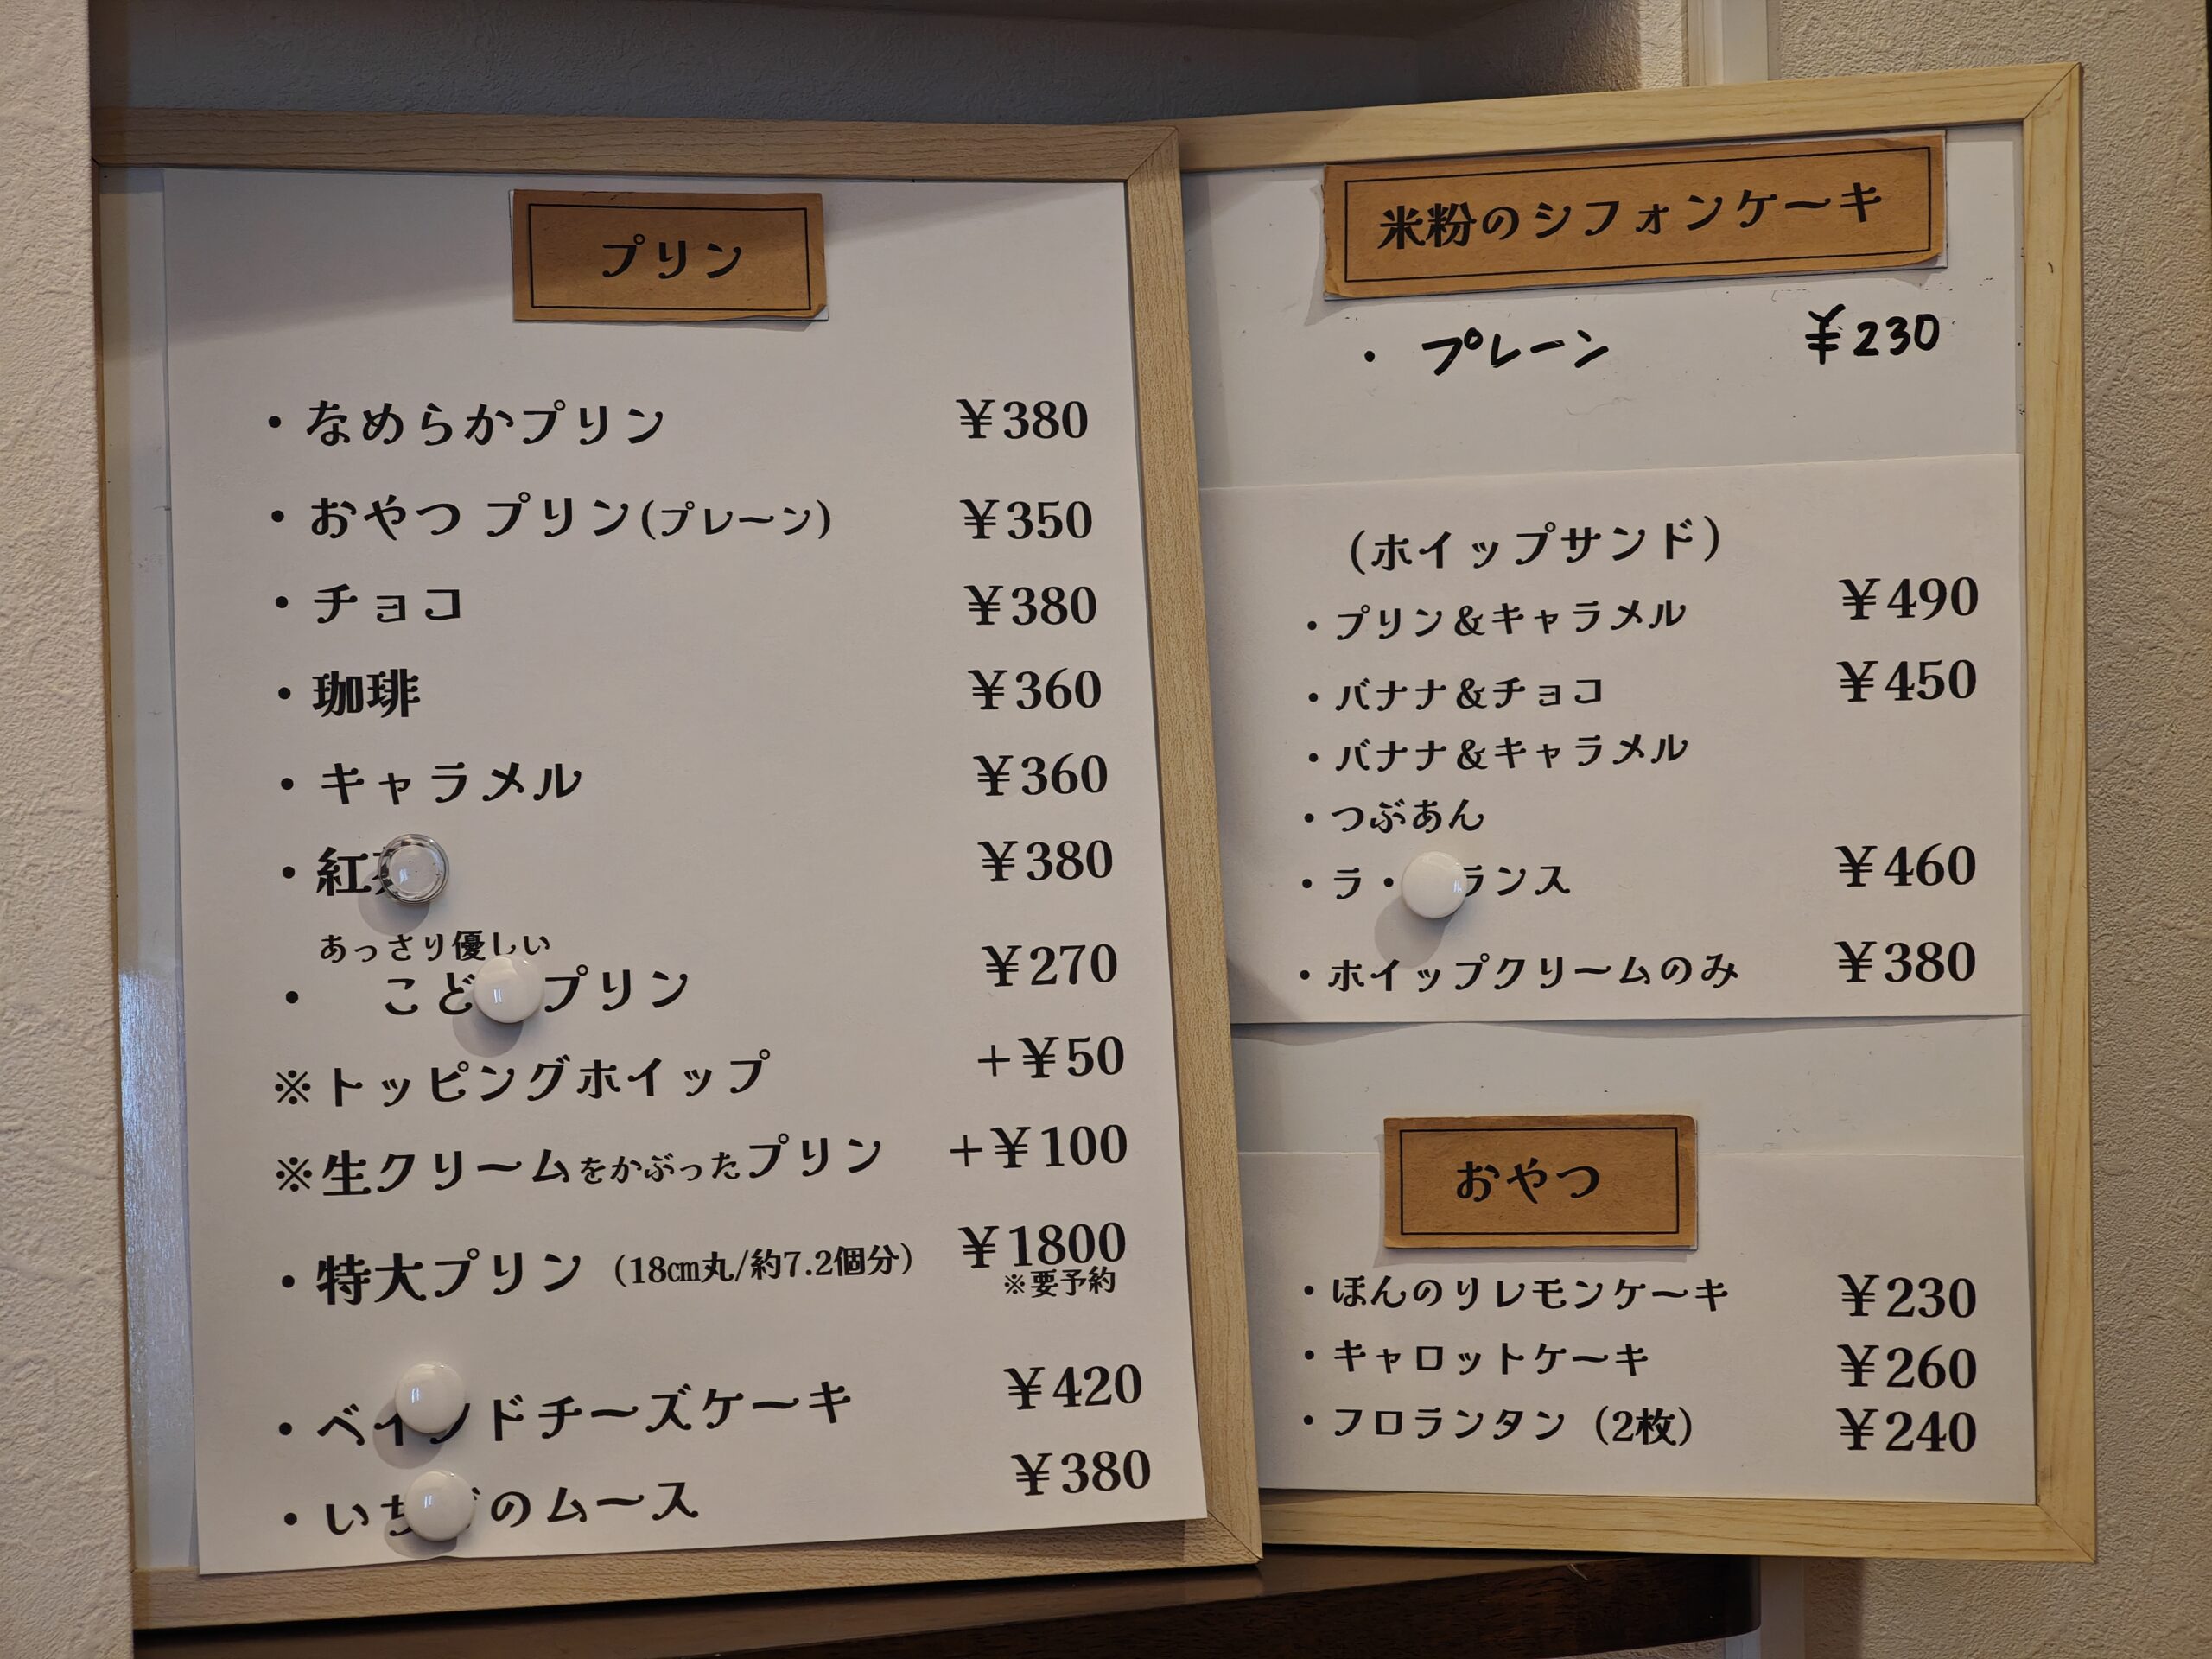 プリン
・なめらかプリン ￥380
・おやつ プリン(プレーン) ￥350
・チョコ ￥380
・珈琲 ￥360
・キャラメル ￥360
・紅 ￥380
あっさり優しい
・ こど プリン ￥270
※トッピングホイップ +￥50
※生クリームをかぶったプリン +￥100
・特大プリン（18㎝丸/約7.2個分） ￥1800
※要予約
・ベイ ドチーズケーキ ￥420
・いち のムース ￥380
米粉のシフォンケーキ
・プレーン ￥230
（ホイップサンド）
・プリン＆キャラメル ￥490
・バナナ＆チョコ ￥450
・バナナ＆キャラメル
・つぶあん
・ラ・ ランス ￥460
・ホイップクリームのみ ￥380
おやつ
・ほんのりレモンケーキ ￥230
・キャロットケーキ ￥260
・フロランタン（2枚） ￥240